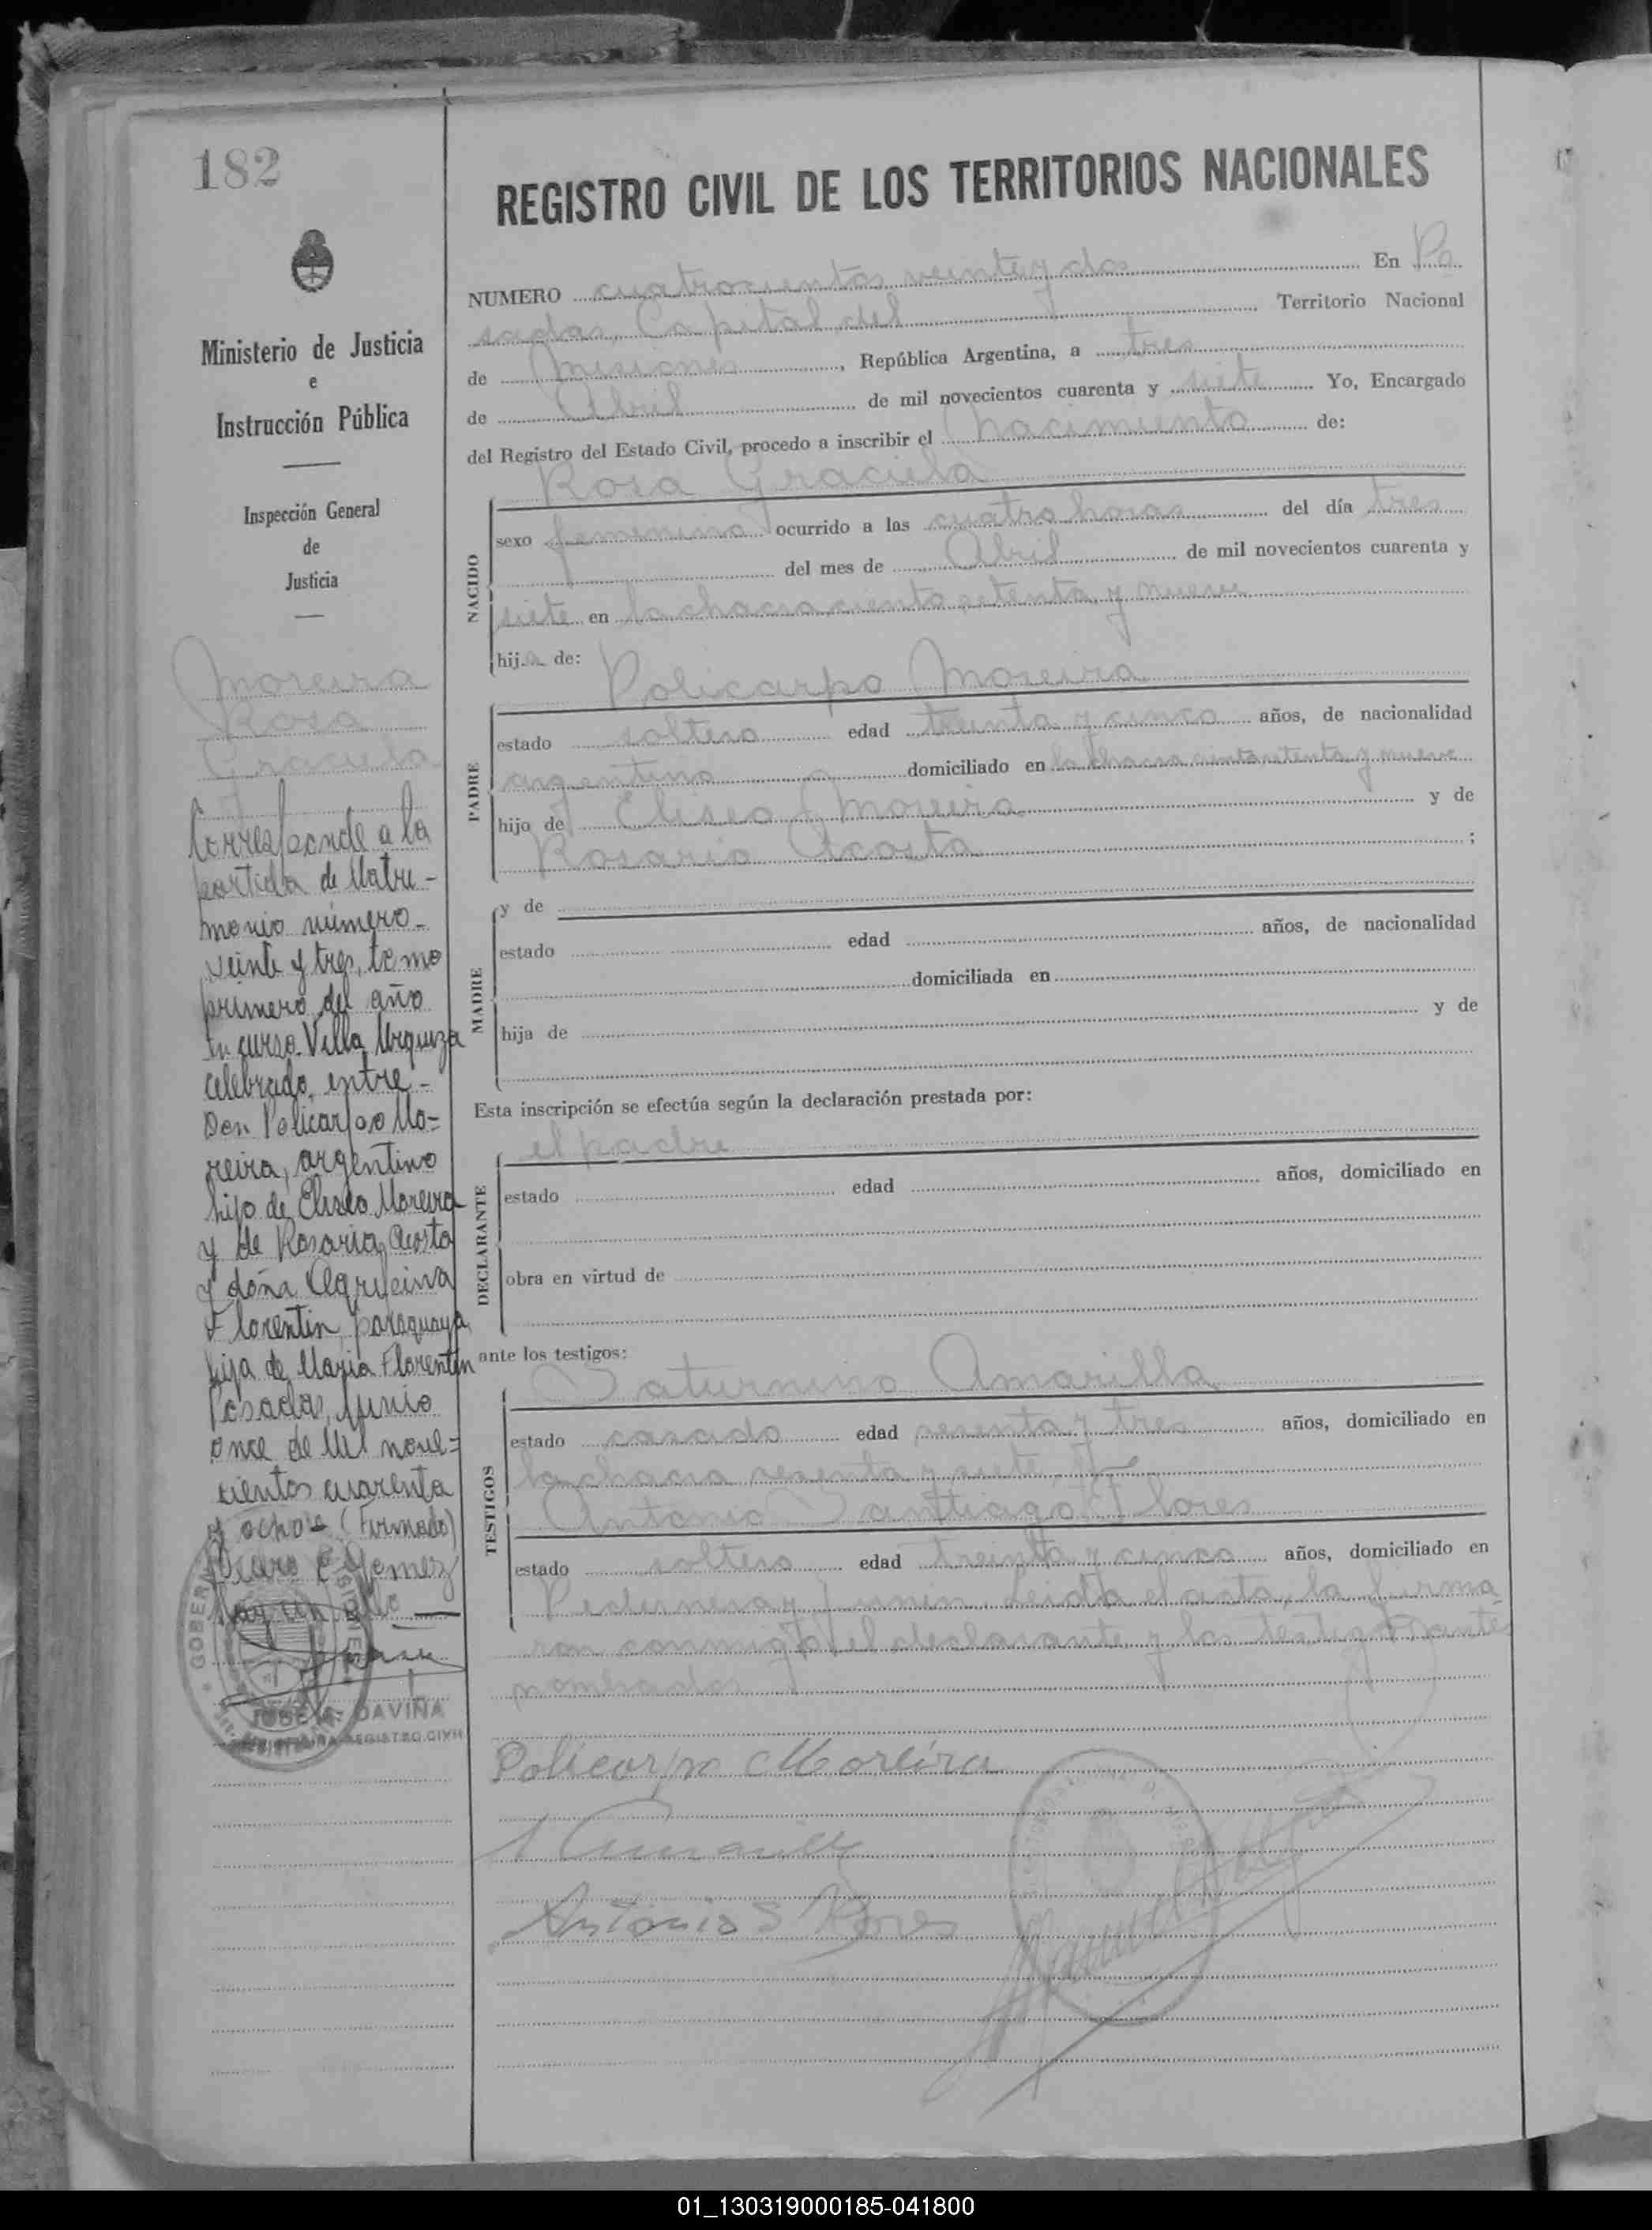 182
Ministerio de Justicia
e
Instrucción Pública
Inspección General
de
Justicia
Moreira
Rosa
Graciela
Corresponde a la
partida de Matri-
monio número
veinte y tres, tomo
primero del año
en curso Villa Urquiza
celebrado, entre
Don Policarpo Mo-
reira, argentino
hijo de Eliseo Moreira
y de Rosario Acosta
y doña Agripina
Florentin, paraguaya,
hija de Maria Florentin
Posadas, Junio
once de Mil nove-
cientos cuarenta
y ocho (Firmado)
E Gomez
GOBER
DAVIÑA
REGISTRO CIVIL
REGISTRO CIVIL DE LOS TERRITORIOS NACIONALES
NUMERO cuatrocientos veinte y dos En Po
sadas, Capital del Territorio Nacional
de Misiones, República Argentina, a tres
de Abril de mil novecientos cuarenta y siete Yo, Encargado
del Registro del Estado Civil, procedo a inscribir el nacimiento de:
Rosa Graciela
NACIDO
sexo femenino ocurrido a las cuatro horas del día tres
del mes de Abril de mil novecientos cuarenta y
siete en la chacra ciento setenta y nueve
hija de:
Policarpo Moreira
PADRE
estado soltero edad treinta y cinco años, de nacionalidad
argentino domiciliado en la chacra ciento setenta y nueve
hijo de Eliseo Moreira y de
Rosario Acosta ;
MADRE
y de
estado edad años, de nacionalidad
domiciliada en
hija de y de
Esta inscripción se efectúa según la declaración prestada por:
el padre
DECLARANTE
estado edad años, domiciliado en
obra en virtud de
ante los testigos:
Saturnino Amarilla
TESTIGOS
estado casado edad sesenta y tres años, domiciliado en
la chacra sesenta y siete
Antonio Santiago Flores
estado soltero edad treinta y cinco años, domiciliado en
Pedernera y Junin. Leida el acta, la firma
ron conmigo el declarante y los testigos ante
nombrados
Policarpo Moreira
Antonio S Flores
01_130319000185-041800